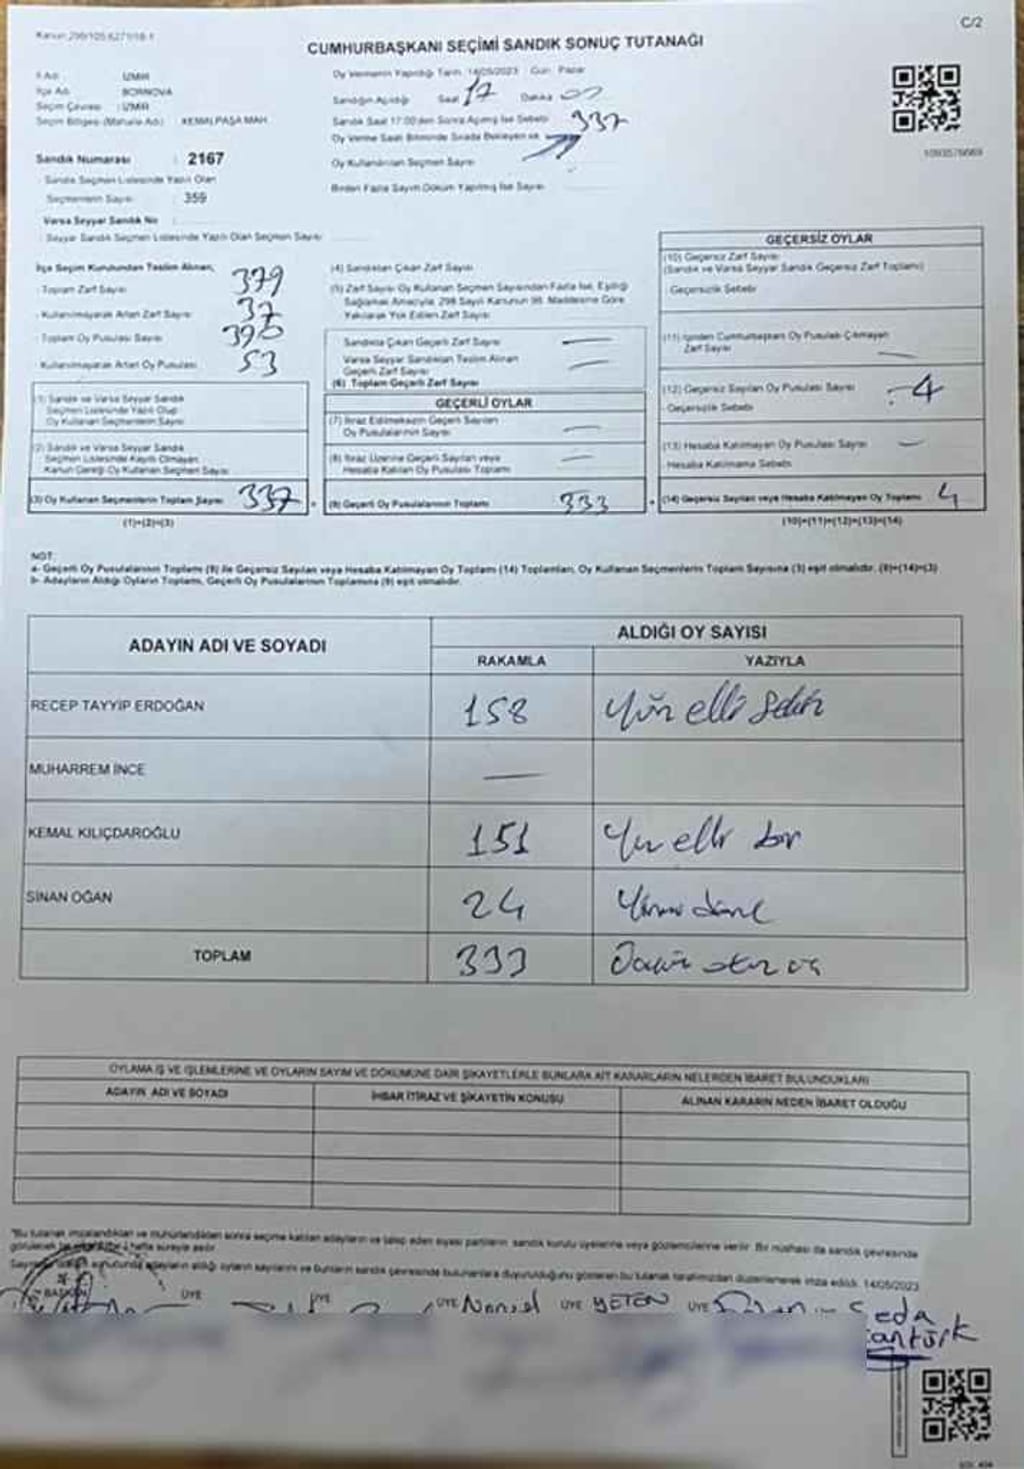 C/2
CUMHURBAŞKANI SEÇİMİ SANDIK SONUÇ TUTANAĞI
İl Adı : İZMİR
İlçe Adı : BORNOVA
Seçim Çevresi : İZMİR
Seçim Bölgesi (Mahalle Adı) : KEMALPAŞA MAH.
Oy Vermenin Yapıldığı Tarih: 14/05/2023 Gün: Pazar
Sandığın Açıldığı Saat 17 Dakika 00
Sandık Saat 17:00'den Sonra Açılmış İse Sebebi
Oy Verme Saati Bitiminde Sırada Bekleyen vs.
337
Oy Kullanılan Seçmen Sayısı
Birden Fazla Sayım Döküm Yapılmış İse Sayısı
Sandık Numarası : 2167
Sandık Seçmen Listesinde Yazılı Olan
Seçmenlerin Sayısı : 359
Varsa Seyyar Sandık No
Seyyar Sandık Seçmen Listesinde Yazılı Olan Seçmen Sayısı
İlçe Seçim Kurulundan Teslim Alınan;
Toplam Zarf Sayısı 379
Kullanılmayarak Artan Zarf Sayısı 37
Toplam Oy Pusulası Sayısı 390
Kullanılmayarak Artan Oy Pusulası 53
(1) Sandık ve Varsa Seyyar Sandık
Seçmen Listesinde Yazılı Olup
Oy Kullanan Seçmenlerin Sayısı
(2) Sandık ve Varsa Seyyar Sandık
Seçmen Listesinde Kaydı Olmayan
Kanun Gereği Oy Kullanan Seçmen Sayısı
(3) Oy Kullanan Seçmenlerin Toplam Sayısı 337
(1)+(2)=(3)
(4) Sandıktan Çıkan Zarf Sayısı
(5) Zarf Sayısı Oy Kullanan Seçmen Sayısından Fazla İse, Eşitliği
Sağlamak Amacıyla 298 Sayılı Kanunun 98. Maddesine Göre
Yakılarak Yok Edilen Zarf Sayısı
Sandıkta Çıkan Geçerli Zarf Sayısı —
Varsa Seyyar Sandıktan Teslim Alınan
Geçerli Zarf Sayısı —
(6) Toplam Geçerli Zarf Sayısı
GEÇERLİ OYLAR
(7) İtiraz Edilmeksizin Geçerli Sayılan
Oy Pusulalarının Sayısı —
(8) İtiraz Üzerine Geçerli Sayılan veya
Hesaba Katılan Oy Pusulası Toplamı —
(9) Geçerli Oy Pusulalarının Toplamı 333
GEÇERSİZ OYLAR
(10) Geçersiz Zarf Sayısı
(Sandık ve Varsa Seyyar Sandık Geçersiz Zarf Toplamı)
Geçersizlik Sebebi
(11) İçinden Cumhurbaşkanı Oy Pusulası Çıkmayan
Zarf Sayısı —
(12) Geçersiz Sayılan Oy Pusulası Sayısı : 4
Geçersizlik Sebebi
(13) Hesaba Katılmayan Oy Pusulası Sayısı —
Hesaba Katılmama Sebebi
(14) Geçersiz Sayılan veya Hesaba Katılmayan Oy Toplamı 4
(10)+(11)+(12)+(13)=(14)
NOT:
a- Geçerli Oy Pusulalarının Toplamı (9) ile Geçersiz Sayılan veya Hesaba Katılmayan Oy Toplam (14) Toplamları, Oy Kullanan Seçmenlerin Toplam Sayısına (3) eşit olmalıdır. (9)+(14)=(3)
b- Adayların Aldığı Oyların Toplamı, Geçerli Oy Pusulalarının Toplamına (9) eşit olmalıdır.
ADAYIN ADI VE SOYADI
ALDIĞI OY SAYISI
RAKAMLA YAZIYLA
RECEP TAYYİP ERDOĞAN 158 Yüz elli Sekiz
MUHARREM İNCE —
KEMAL KILIÇDAROĞLU 151 Yüz elli bir
SİNAN OĞAN 24
TOPLAM 333
OYLAMA İŞ VE İŞLEMLERİNE VE OYLARIN SAYIM VE DÖKÜMÜNE DAİR ŞİKAYETLERLE BUNLARA AİT KARARLARIN NELERDEN İBARET BULUNDUKLARI
ADAYIN ADI VE SOYADI İHBAR İTİRAZ VE ŞİKAYETİN KONUSU ALINAN KARARIN NEDEN İBARET OLDUĞU
*Bu tutanak imzalandıktan ve mühürlendikten sonra seçime katılan adayların ve talep eden siyasi partilerin sandık kurulu üyelerine veya gözlemcilerine verilir. Bir nüshası da sandık çevresinde
hafta süreyle asılır.
adayların aldığı oyların sayılarını ve bunların sandık çevresinde bulunanlara duyurulduğunu gösteren bu tutanak tarafımızdan düzenlenerek imza edildi. 14/05/2023
BAŞKAN ÜYE ÜYE ÜYE ÜYE YETEN ÜYE Seda